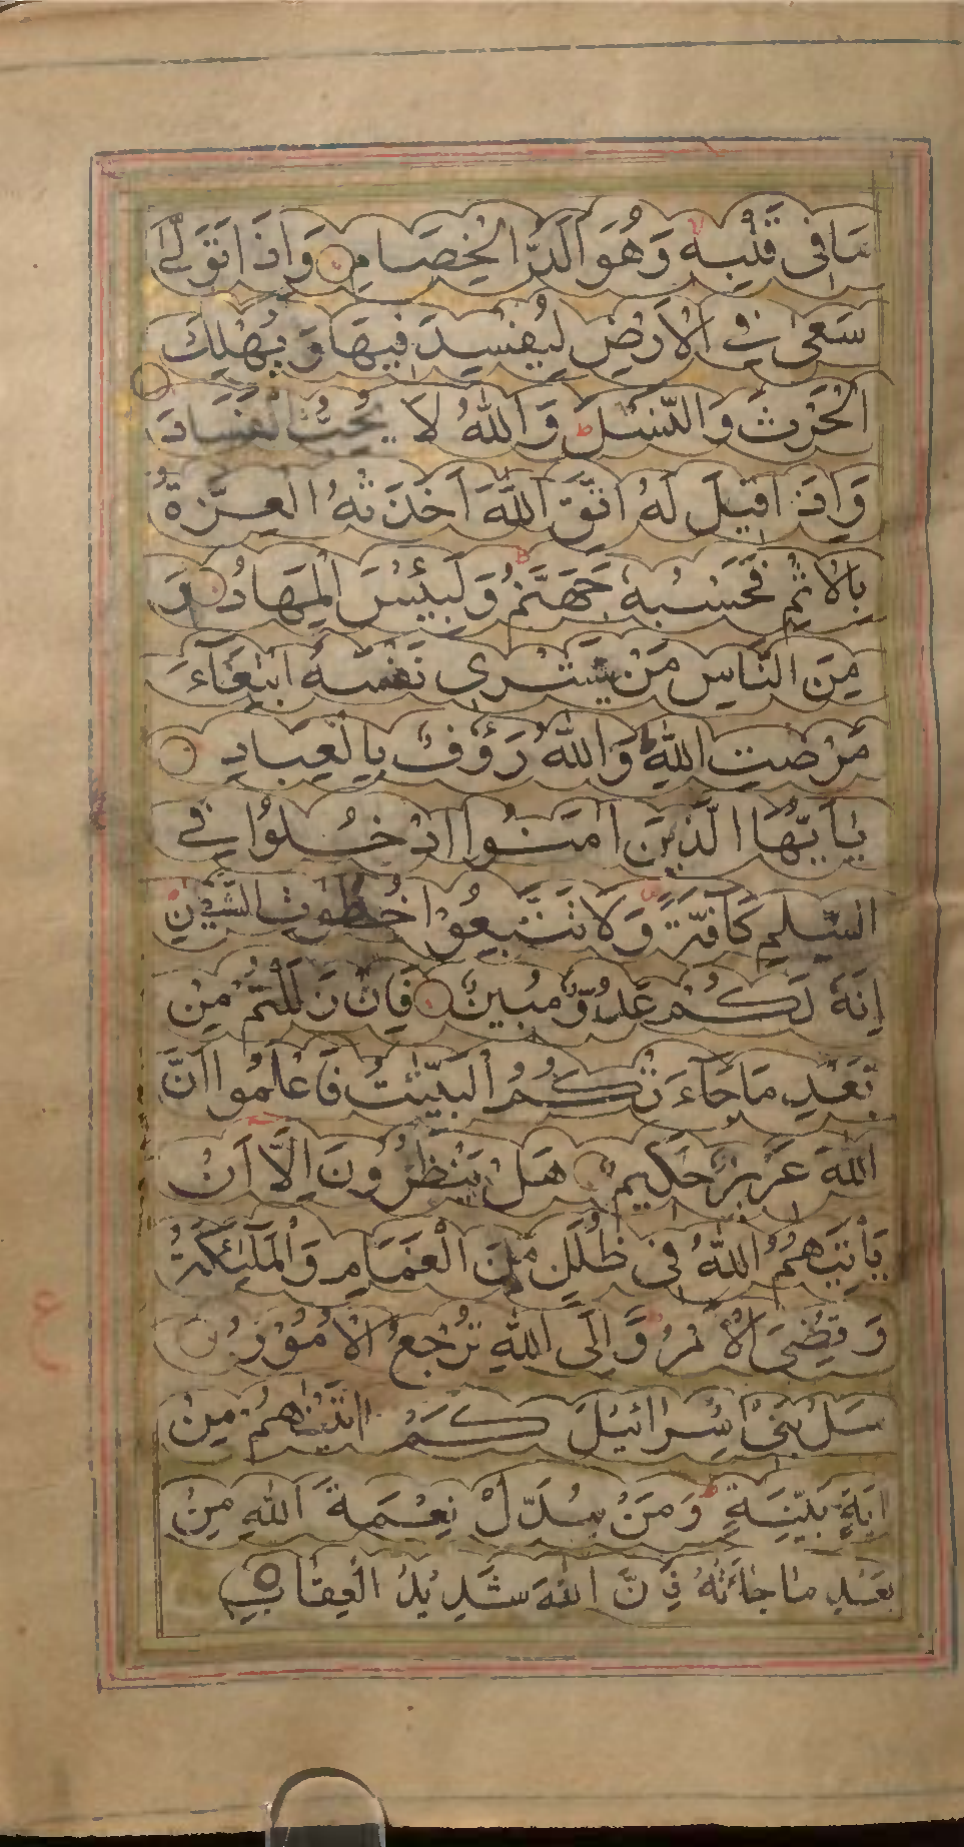 مَا فِى قَلْبِهٖ وَهُوَ اَلَدُّ الْخِصَامِ وَاِذَا تَوَلّٰى
سَعٰى فِى الْاَرْضِ لِيُفْسِدَ فِيْهَا وَ يُهْلِكَ
الْحَرْثَ وَالنَّسْلَ ط وَاللّٰهُ لَا يُحِبُّ الْفَسَادَ
وَاِذَا قِيْلَ لَهُ اتَّقِ اللّٰهَ اَخَذَتْهُ الْعِزَّةُ
بِالْاِثْمِ فَحَسْبُهٗ جَهَنَّمُ ط وَلَبِئْسَ الْمِهَادُ وَ
مِنَ النَّاسِ مَنْ يَّشْرِى نَفْسَهُ ابْتِغَآءَ
مَرْضَتِ اللّٰهِ ط وَاللّٰهُ رَؤُفٌ بِالْعِبَادِ
يٰاَيُّهَا الَّذِيْنَ اٰمَنُوا ادْخُلُوْا فِى
السِّلْمِ كَآفَّةً وَلَا تَتَّبِعُوْا خُطُوٰتِ الشَّيْطٰنِ
اِنَّهٗ لَكُمْ عَدُوٌّ مُبِيْنٌ فَاِنْ زَلَلْتُمْ مِنْ
بَعْدِ مَا جَآءَ تْكُمُ الْبَيِّنٰتُ فَاعْلَمُوا اَنَّ
اللّٰهَ عَزِيْزٌ حَكِيْمٌ هَلْ يَنْظُرُوْنَ اِلَّا اَنْ
يَأْتِيَهُمُ اللّٰهُ فِى ظُلَلٍ مِنَ الْغَمَامِ وَالْمَلٰٓئِكَةُ
وَقُضِىَ الْاَمْرُ وَاِلَى اللّٰهِ تُرْجَعُ الْاُمُوْرُ
ع
سَلْ بَنِىْ اِسْرَائِيْلَ كَمْ اٰتَيْنٰهُمْ مِنْ
اٰيَةٍ بَيِّنَةٍ ط وَمَنْ يُبَدِّلْ نِعْمَةَ اللّٰهِ مِنْ
بَعْدِ مَا جَاءَتْهُ فَاِنَّ اللّٰهَ شَدِيْدُ الْعِقَابِ